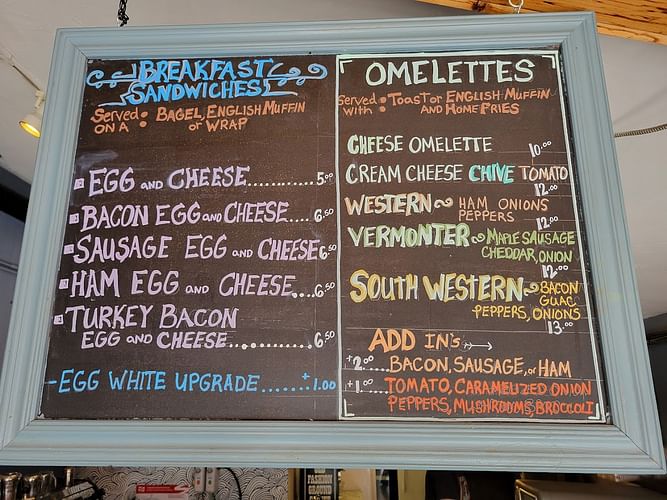 BREAKFAST
SANDWICHES
SERVED ON A : BAGEL, ENGLISH MUFFIN
OR WRAP
EGG AND CHEESE.......... 5.00
BACON EGG AND CHEESE.... 6.50
SAUSAGE EGG AND CHEESE 6.50
HAM EGG AND CHEESE.... 6.50
TURKEY BACON
EGG AND CHEESE............ 6.50
-EGG WHITE UPGRADE......+1.00
OMELETTES
Served With : TOAST or ENGLISH MUFFIN
AND HOME FRIES
CHEESE OMELETTE 10.00
CREAM CHEESE CHIVE TOMATO
12.00
WESTERN~ HAM ONIONS
PEPPERS
12.00
VERMONTER~ MAPLE SAUSAGE
CHEDDAR, ONION
12.00
SOUTH WESTERN~ BACON
GUAC
PEPPERS, ONIONS
13.00
ADD IN's
+2.00.... BACON, SAUSAGE, or HAM
+1.00.... TOMATO, CARAMELIZED ONION
PEPPERS, MUSHROOMS, BROCCOLI